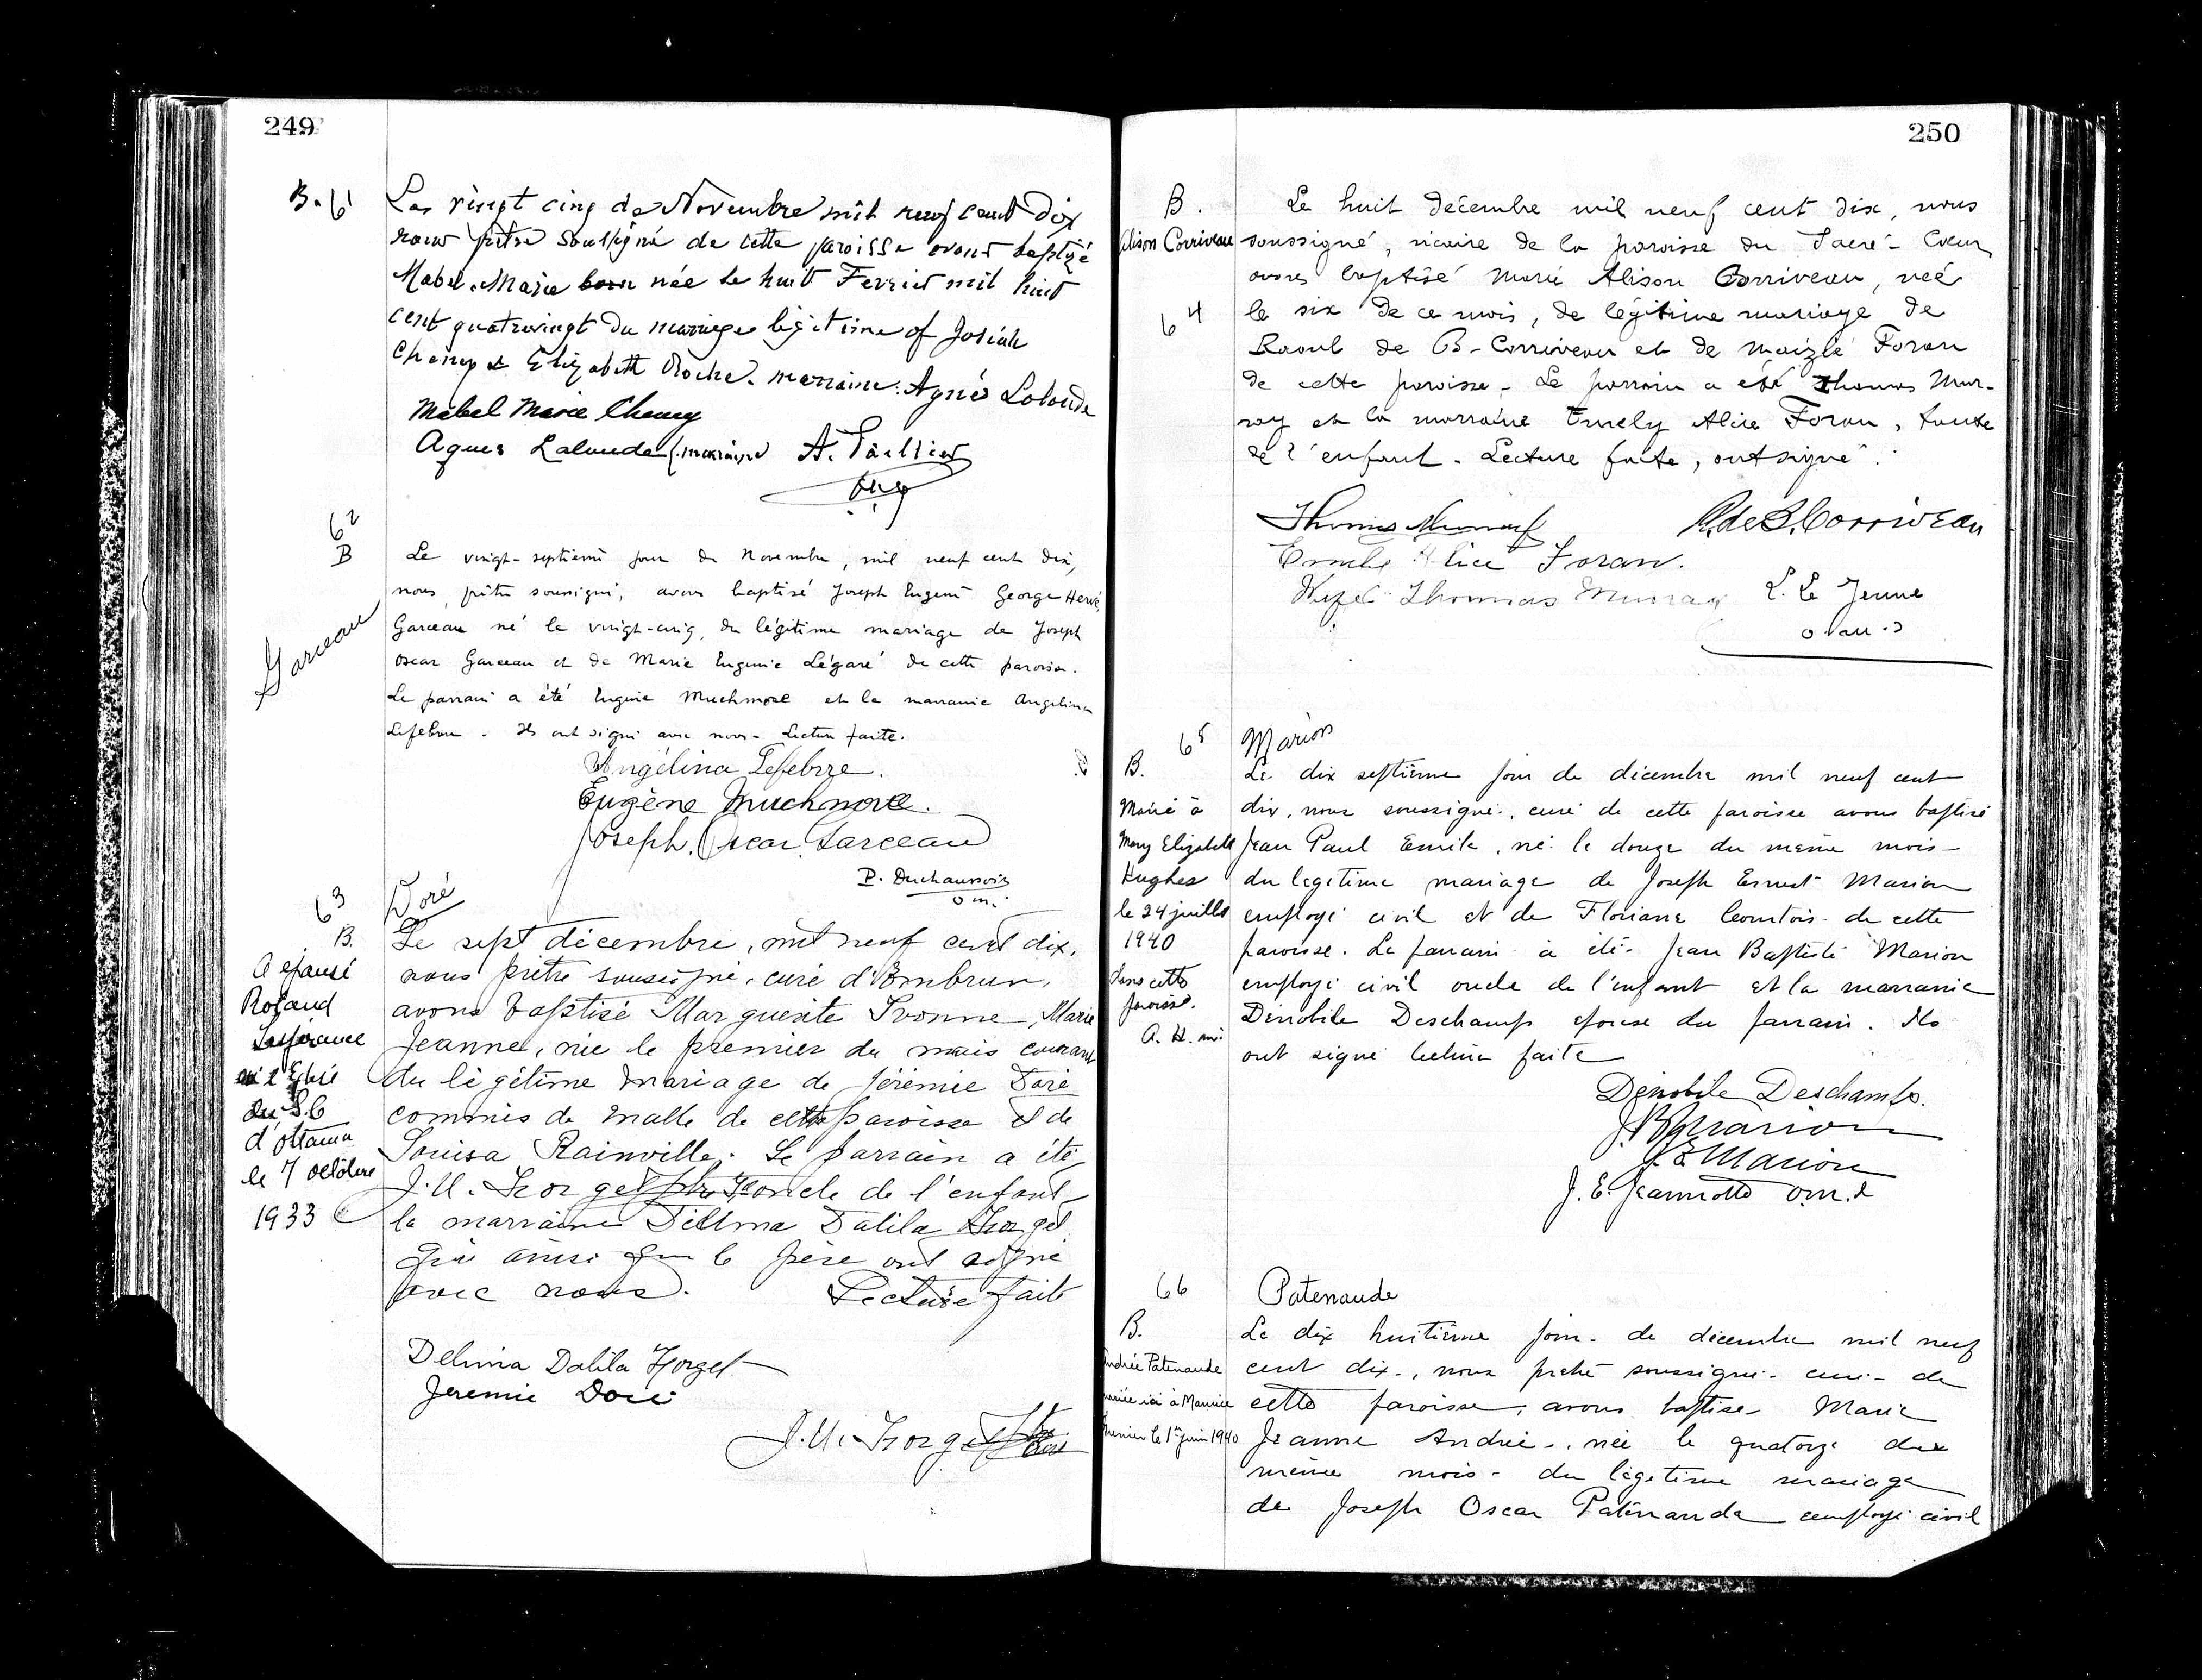 249
B. 61
Les vingt cinq de Novembre mil neuf cent dix
nous prêtre soussigné de cette paroisse avons baptizé
Mabel. Marie born née le huit Fevrier mil huit
cent quatrevingt du mariage légitime of Josiah
Cheney & Elizabeth Roche. marraine: Agnés Lalonde
Mabel Marie Cheney
Agnes Lalonde (marraine) A. Paillier
omi
62
B
Garceau
Le vingt-septième jour de Novembre, mil neuf cent dix,
nous, prêtre soussigné, avons baptisé Joseph Eugène George Hervé,
Garceau né le vingt-cinq, du légitime mariage de Joseph
Oscar Garceau et de Marie Eugenie Légaré de cette paroisse.
Le parrain a été Eugène Muchmore et la marraine Angelina
Lefebvre. Ils ont signé avec nous - Lecture faite.
Angélina Lefebvre.
Eugène Muchmore.
Joseph. Oscar Garceau
P. Duchaussois
o m i
63
B.
A épousé
Roland
Lespérance
en l'Eglise
du S.C
d'Ottawa
le 7 octobre
1933
Doré
Le sept décembre, mil neuf cent dix,
nous prêtre soussigné, curé d'Embrun,
avons baptisé Marguerite Yvonne, Marie
Jeanne, née le premier du mois courant
du légitime mariage de Jérémie Doré
commis de malle de cette paroisse et de
Louisa Rainville. Le parrain a été
J.U. Forget Ptre oncle de l'enfant
la marraine Délima Dalila Forget
qui ainsi que le père ont signé
avec nous. Lecture faite
Delima Dalila Forget
Jeremie Doré
J.U. Forget Ptre Curé
250
B.
Alison Corriveau
64
Le huit décembre mil neuf cent dix, nous
soussigné, vicaire de la paroisse du Sacré-Coeur
avons baptisé Marie Alison Corriveau, née
le six de ce mois, de légitime mariage de
Raoul de B-Corriveau et de Maizie Foran
de cette paroisse - Le parrain a été Thomas Mur-
ray et la marraine Emely Alice Foran, tante
de l'enfant. Lecture faite, ont signé.
Thomas Murray R. de B. Corriveau
Emily Alice Foran.
Wife Thomas Murray L. Le Jeune
o.m.i.
65
B.
Marié à
Mary Elizabeth
Hughes
le 24 juillet
1940
dans cette
paroisse.
A. H. omi
Marion
Le dix septième jour de décembre mil neuf cent
dix, nous soussigné, curé de cette paroisse avons baptisé
Jean Paul Emile, né le douze du même mois
du legitime mariage de Joseph Ernest Marion
employé civil et de Floriane Courtois de cette
paroisse. Le parrain a été Jean Baptiste Marion
employé civil oncle de l'enfant et la marraine
Dénobile Deschamps épouse du parrain. Ils
ont signé lecture faite
Dénobile Deschamps.
J.B. Marion
J. E Marion
J. E. Jeannotte o.m.i
66
B.
Andrée Patenaude
mariée ici à Maurice
Grenier le 1er juin 1940
Patenaude
Le dix huitième jour de décembre mil neuf
cent dix, nous prêtre soussigné curé de
cette paroisse, avons baptisé Marie
Jeanne Andrée, née le quatorze du
même mois du légitime mariage
de Joseph Oscar Patenaude employé civil